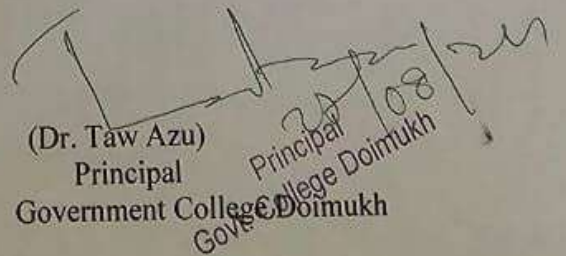 /08/24
(Dr. Taw Azu)
Principal
Government College Doimukh
Principal
Govt. College Doimukh